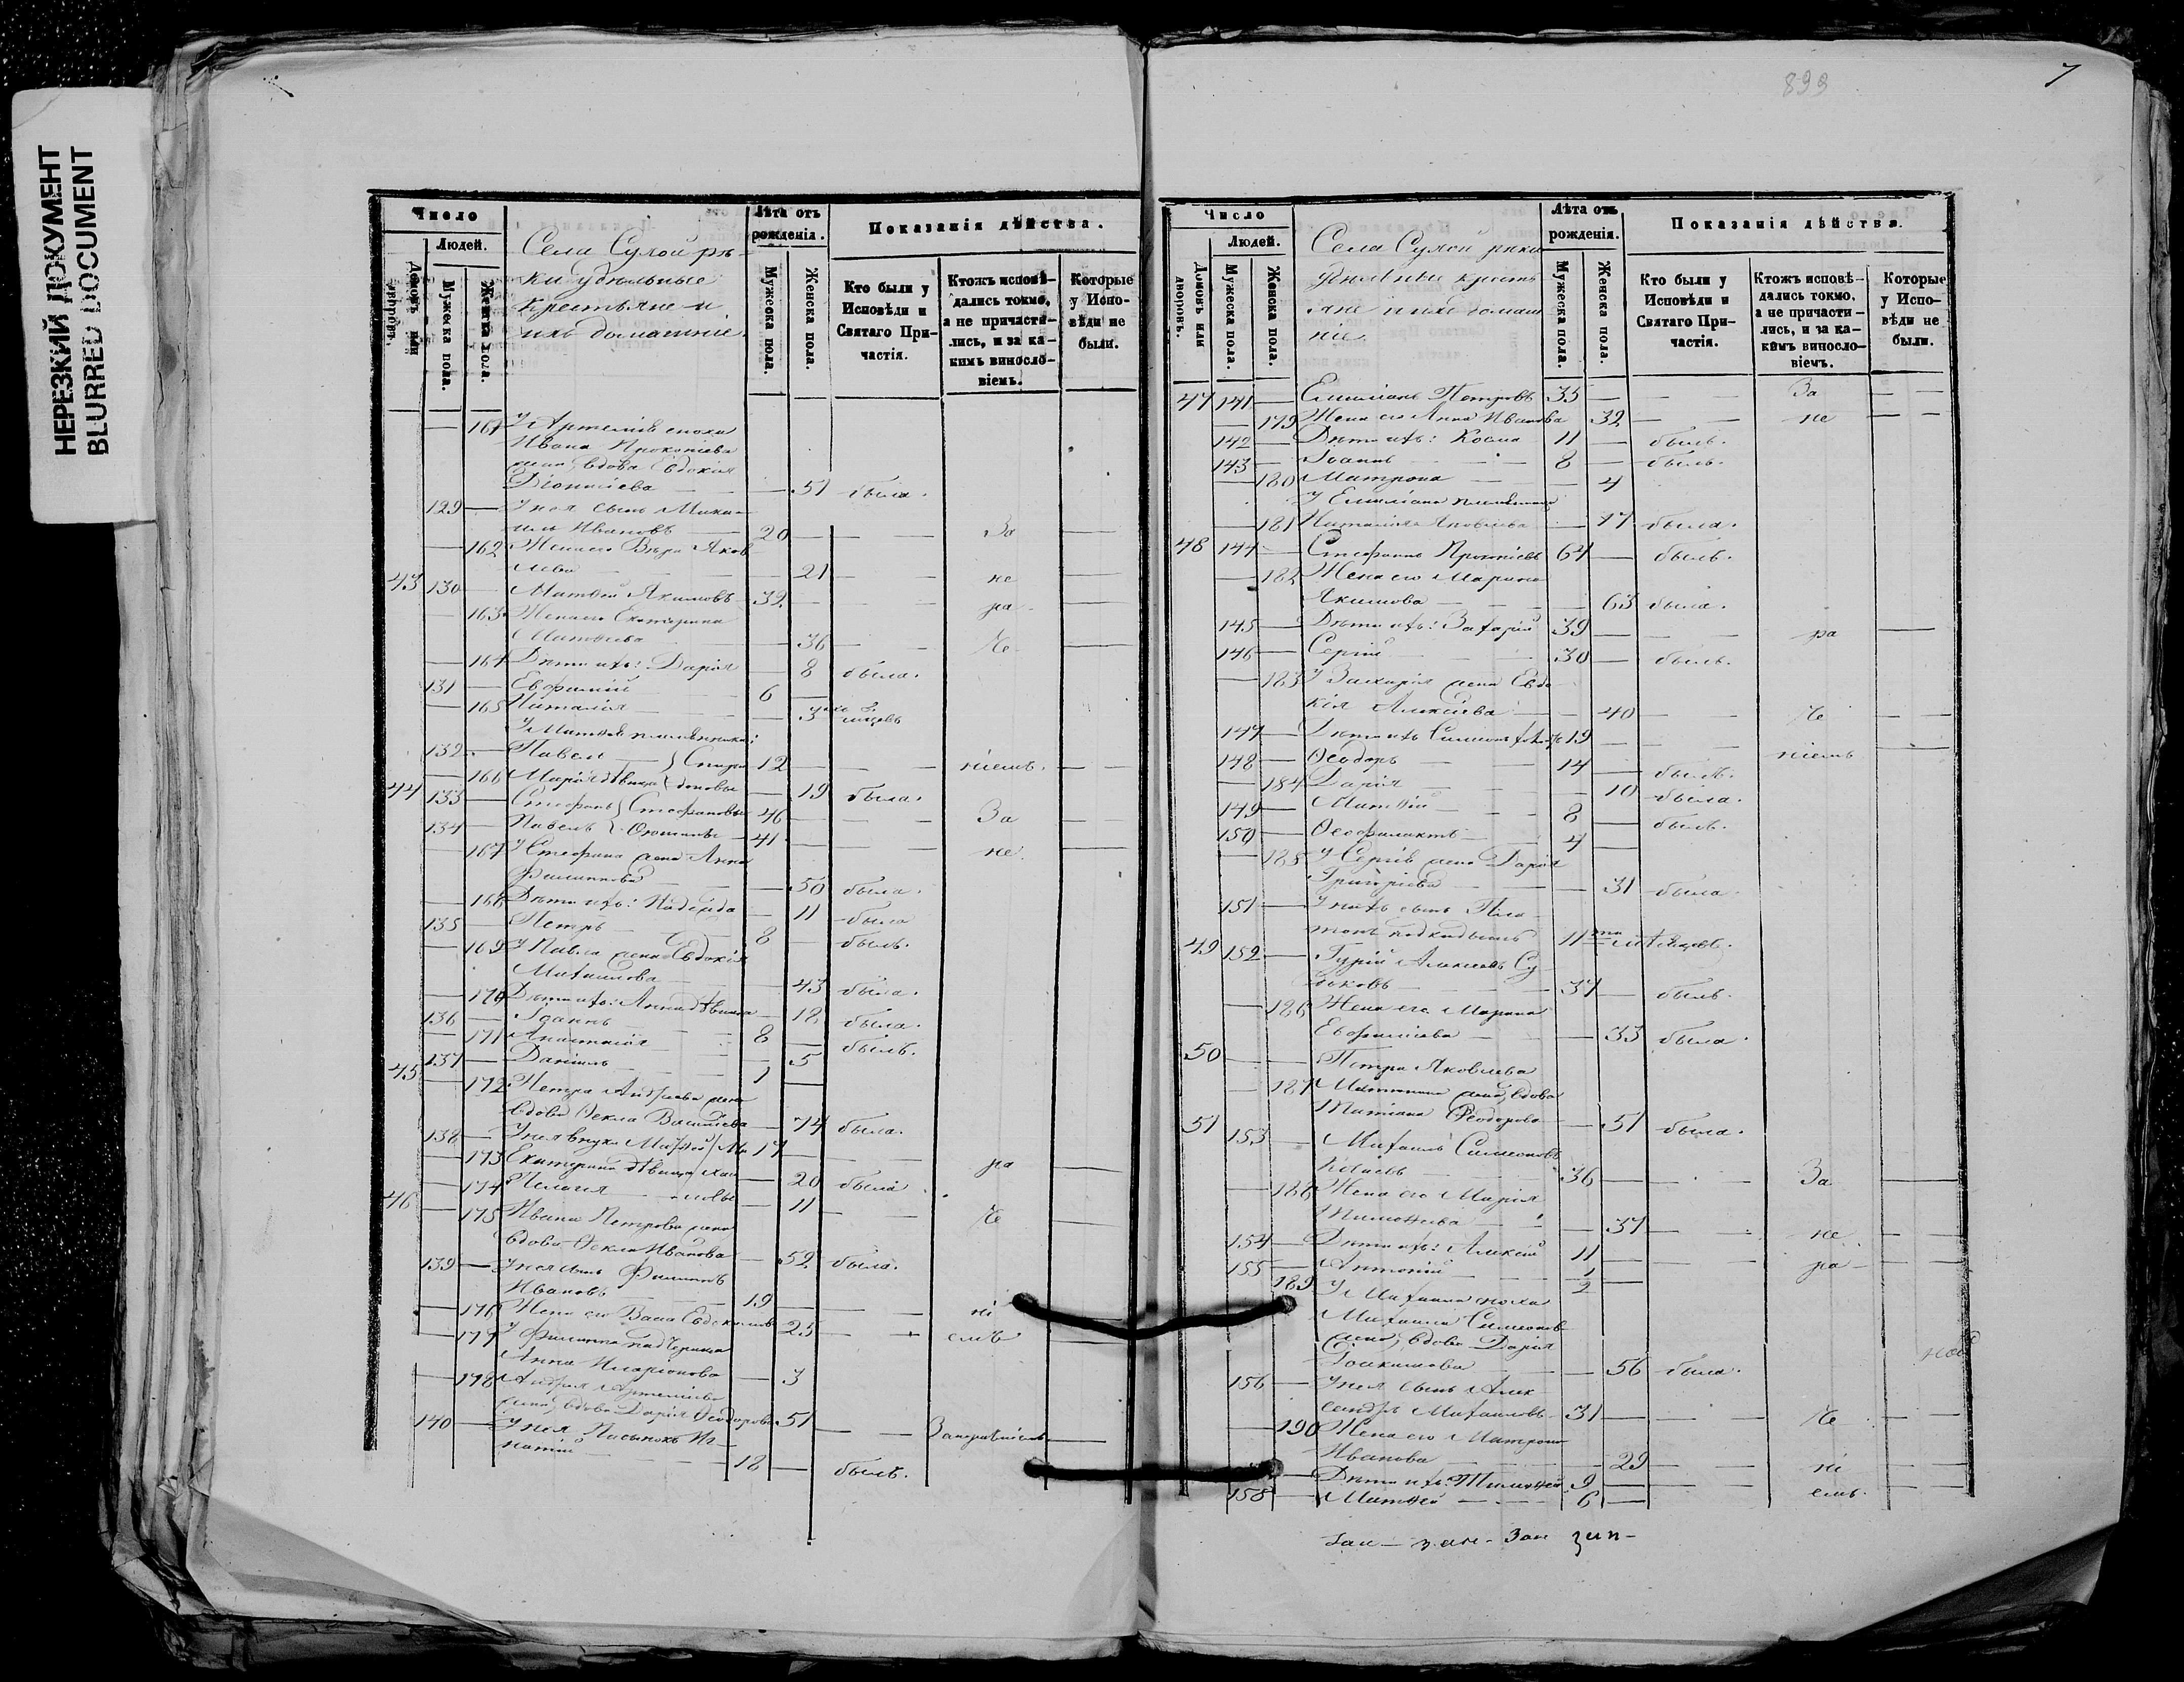 НЕРЕЗКИЙ ДОКУМЕНТ
BLURRED DOCUMENT
Число
Людей.
Домовъ или дворовъ.
Мужеска пола.
Женска пола.
Села Сухой рѣ-
ки удѣльные
крестьяне и
ихъ домашніе.
Лѣта отъ рожденія.
Мужеска пола.
Женска пола.
Показанія дѣйства.
Кто были у Исповѣди и Святаго При-
частія.
Ктожъ исповѣ-
дались токмо, а не причасти-
лись, и за ка-
кимъ виносло-
віемъ.
Которые у Испо-
вѣди не были.
— 161 У Артемія сноха
Ивана Прокопіева
жена, вдова Евдокія
Діонисіева — 51 была.
129 — У нея сынъ Миха-
илъ Ивановъ 20 — За —
— 162 Жена его Вѣра Яков
лева — 21 — не —
43 130 — Матѳей Якимовъ 32 — ра —
— 163 Жена его Екатерина
Матѳеева — 36 — че —
— 164 Дѣти ихъ: Дарія — 8 была.
131 — Евфимій 6 —
— 165 Наталія — 3
У Матѳея племянники:
132 — Павелъ } Спири 12 — ніемъ. —
— 166 Марія дѣвица } доновы — 19 была.
44 133 — Стефанъ } Стефановы 46 — За —
134 — Павелъ } 41 — не. —
— 167 У Стефана жена Анна
Филиппова — 50 была.
— 168 Дѣти ихъ: Надежда — 11 была
135 — Петръ 8 — былъ.
— 169 У Павла жена Евдокія
Михаилова — 43 была.
— 170 Дѣти ихъ: Анна дѣвица — 18 была.
136 — Іоаннъ 8 — былъ.
— 171 Анастасія — 5
137 — Даніилъ 1 —
45 — 172 Петра Андреева жена
вдова Ѳекла Васильева — 74 была.
138 — У нея внуки Матѳей } Ми 17 — ра —
— 173 Екатерина дѣвица } хаи — 20 была
— 174 Пелагея ловы — 11 — че —
46 — 175 Ивана Петрова жена
вдова Ѳекла Иванова — 52 была.
139 — У нея сынъ Филиппъ
Ивановъ 19 — ні —
— 176 Жена его Васса Евдокимова 25 — емъ —
— 177 У Филиппа падчерица
Анна Иларіонова — 3
— 178 Андрея Артеміева
жена, вдова Дарія Ѳеодорова 51 — За нерадѣніемъ —
140 — У нея пасынокъ Иг-
натій 18 — былъ.
899
7
Число
Людей.
Домовъ или дворовъ.
Мужеска пола.
Женска пола.
Села Сухой рѣки
удѣльные кресть
яне и ихъ домаш
ніе.
Лѣта отъ рожденія.
Мужеска пола.
Женска пола.
Показанія дѣйства.
Кто были у Исповѣди и Святаго При-
частія.
Ктожъ исповѣ-
дались токмо, а не причасти-
лись, и за ка-
кимъ виносло-
віемъ.
Которые у Испо-
вѣди не были.
47 141 — Емиліанъ Петровъ 35 — За —
— 179 Жена его Анна Иванова 32 — не —
142 — Дѣти ихъ: Косма 11 — былъ.
143 — Іоаннъ 8 — былъ.
— 180 Матрона — 4
У Емиліана племянница
— 181 Наталія Яковлева — 17 была.
48 144 — Стефанъ Прокопіевъ 64 — былъ.
— 182 Жена его Марина
Якимова — 63 была.
145 — Дѣти ихъ: Захарій 39 — ра —
146 — Сергій 30 — былъ.
— 183 У Захарія жена Евдо
кія Алексіева — 40 — че —
147 — Дѣти ихъ Симеонъ 19 — ніемъ —
148 — Ѳеодоръ 14 — былъ.
— 184 Дарія — 10 была.
149 — Матѳій 8 — былъ.
150 — Ѳеофилактъ 4 —
— 185 У Сергія жена Дарія
Григоріева — 31 была.
151 — У нихъ сынъ Пла-
тонъ подкидышъ 11ти мѣсяцовъ.
49 152 — Гурій Алексіевъ Су-
боковъ 37 — былъ.
— 186 Жена его Марина
Евфиміева — 33 была.
50 — Петра Яковлева
— 187 жена, вдова
Татіана Ѳеодорова — 51 была.
51 153 — Михаилъ Симеоновъ
36 — За —
— 188 Жена его Марія
Тимоѳеева — 37 — не —
154 — Дѣти ихъ: Алексій 11 — ра —
155 — Антоній 1/2 —
— 189 У Михаила сноха
Михаила Симеонова
жена, вдова Дарія
Іоакимова — 56 была.
156 — У нея сынъ Алек
сандръ Михаиловъ 31 — че —
— 190 Жена его Матрона
Иванова — 29 — ні —
— Дѣти ихъ: Тимоѳей 9 — емъ. —
158 — Матѳей 6 —